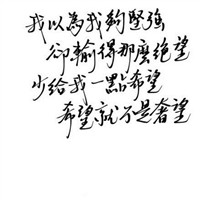 我以為我夠堅強
卻輸得那麼絕望
少給我一點希望
希望就不是奢望